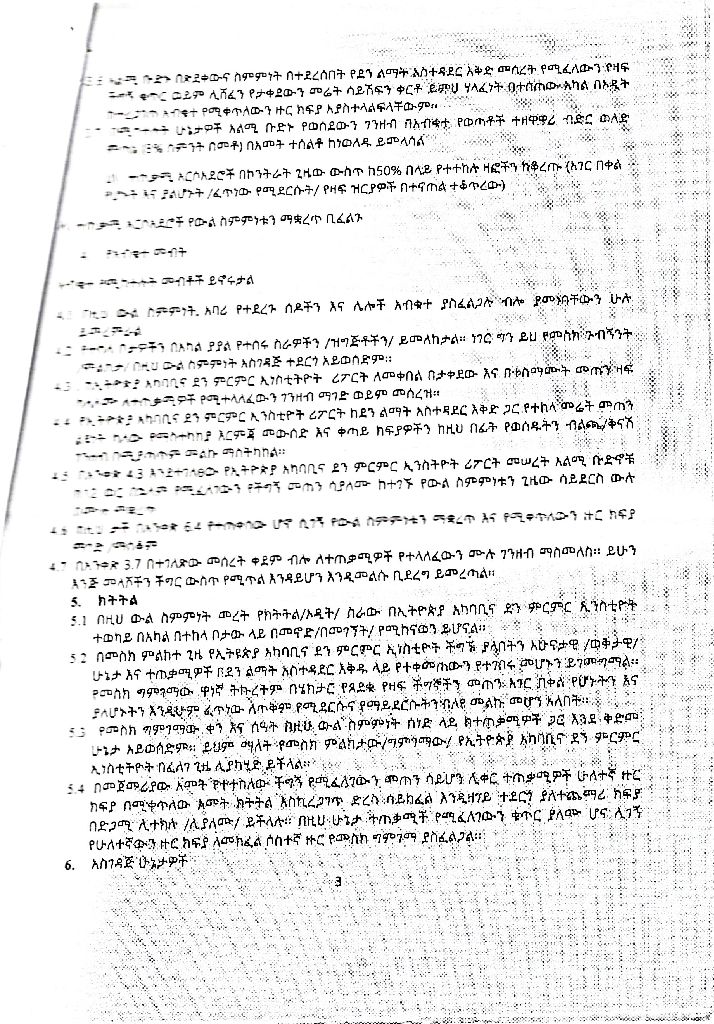 ቡድኑ በጽደቀውና ስምምነት በተደረሰበት የደን ልማት አስተዳደር እቅድ መሰረት የሚፈለውን የዛፍ
ችግኝ ቁጥር ወይም ሊሸፈን የታቀደውን መሬት ሳይሸፍን ቀርቶ ይምህ ሃላፊነት በተሰጠው አካል በኦዲት
አብቁተ የሚቀጥለውን ዙር ክፍያ አያስተላልፍላቸውም።
ሁኔታዎች አልሚ ቡድኑ የወሰደውን ገንዘብ በአብቁተ የወጣቶች ተዘዋዋሪ ብድር ወለድ
(8% ስምንት በመቶ) በአመት ተሰልቶ ከነወለዱ ይመላሳል
አርሶአደሮች በኮንትራት ጊዜው ውስጥ ከ50% በላይ የተተከሉ ዛፎችን ከቆረጡ (አገር በቀል
እና ያልሆኑት /ፈጥነው የሚደርሱት/ የዛፍ ዝርያዎች በተናጠል ተቆጥረው)
ተጠቃሚ አርሶአደሮች የውል ስምምነቱን ማቋረጥ ቢፈልጉ
4 የአብቁተ መብት
አብቁተ የሚከተሉት መብቶች ይኖሩታል
4.1 በዚህ ውል ስምምነት አባሪ የተደረጉ ሰዶችን እና ሌሎች አብቁተ ያስፈልጋሉ ብሎ ያመነባቸውን ሁሉ
ይመረምራል
4.2 የተተከሉ ቦታዎችን በአካል ያያል የተሰሩ ስራዎችን /ዝግጅቶችን/ ይመለከታል። ነገር ግን ይህ የመስክ ጉብኝንት
/ምልከታ/ በዚህ ውል ስምምነት አስገዳጅ ተደርጎ አይወሰድም።
4.3 የኢትዮጵያ አካባቢና ደን ምርምር ኢነስቲትዮት ሪፖርት ለመቀበል በታቀደው እና በተስማሙት መጠን ዛፍ
ካላለሙ ለተጠቃሚዎች የሚተላለፈውን ገንዘብ ማገድ ወይም መሰረዝ።
4.4 የኢትዮጵያ አካባቢና ደን ምርምር ኢንስቲዮት ሪፖርት ከደን ልማት አስተዳደር እቅድ ጋር የተከላ መሬት መጠን
ልዩነት ካለው የመስተካከያ እርምጃ መውሰድ እና ቀጣይ ክፍያዎችን ከዚህ በፊት የወሰዱትን ብልጫ/ቅናሽ
ገንዘብ በሚያጣጥም መልኩ ማስትካከል።
4.5 በአንቀጽ 4.3 እንደተገለፀው የኢትዮጵያ አካባቢና ደን ምርምር ኢንስትዮት ሪፖርት መሠረት አልሚ ቡድኖቹ
ወር በኋላም የሚፈለገውን የችግኝ መጠን ሳያለሙ ከተገኙ የውል ስምምነቱን ጊዜው ሳይደርስ ውሉ
4.6 በአንቀጽ 6.4 የተጠቀሰው ሆኖ ቢገኝ የውል ስምምነቱን ማቋረጥ እና የሚቀጥለውን ዙር ክፍያ
ማገድ /መሰረዝ
4.7 በአንቀጽ 3.7 በተገለጽው መሰረት ቀደም ብሎ ለተጠቃሚዎች የተላለፈውን ሙሉ ገንዘብ ማስመለስ። ይሁን
እንጅ መላሾችን ችግር ውስጥ የሚጥል እንዳይሆን እንዲመልሱ ቢደረግ ይመረጣል።
5. ክትትል
5.1 በዚህ ውል ስምምነት መረት የክትትል/ኦዲት/ ስራው በኢትዮጵያ አካባቢና ደን ምርምር ኢንስቲዮት
ተወካይ በአካል በተከላ ቦታው ላይ በመኖድ/በመገኘት/ የሚከናወን ይሆናል።
5.2 በመስክ ምልከተ ጊዜ የኢትዩጵያ አካባቢና ደን ምርምር ኢነስቲዮት ችግኙ ያለበትን አሁናታዊ /ወቅታዊ/
ሁኔታ እና ተጠቃሚዎች በደን ልማት አስተዳደር እቅዱ ላይ የተቀመጠውን የተገበሩ መሆኑን ይገመግማል።
የመስክ ግምገማው ዋነኛ ትኩረትም በሄክታር የጸደቁ የዛፍ ችግኞችን መጠን አገር በቀል የሆኑትን እና
ያለሆኑትን እንዲሁም ፈጥነው ለጥቅም የሚደርሱና የማይደርሱትን በለየ መልኩ መሆን አለበት።
5.3 የመስክ ግምገማው ቀን እና ሰዓት በዚሀው ውል ስምምነት ሰነድ ላይ ከተጠቃሚዎች ጋር እንደ ቅድመ
ሁኔታ አይወሰድም። ይህም ማለት የመስክ ምልከታው/ግምገማው/ የኢትዮጵያ አካባቢና ደን ምርምር
ኢነስቲትዮት በፈለገ ጊዜ ሊያካሂድ ይችላል።
5.4 በመጀመሪያው አመት የተተከለው ችግኝ የሚፈለገውን መጠን ሳይሆን ሊቀር ተጠቃሚዎች ሁለተኛ ዙር
ክፍያ በሚቀጥለው አመት ክትትል እስኪረጋገጥ ድረስ ሳይከፈል እንዲዘገይ ተደርጎ ያለተጨማሪ ክፍያ
በድጋሚ ሊተክሉ /ሊያለሙ/ ይችላሉ። በዚህ ሁኔታ ትጠቃሚች የሚፈለገውን ቁጥር ያለሙ ሆኖ ሊገኝ
የሁለተኛውን ዙር ክፍያ ለመክፈል ሶስተኛ ዙር የመስክ ግምገማ ያስፈልጋል።
6. አስገዳጅ ሁኔታዎች
3